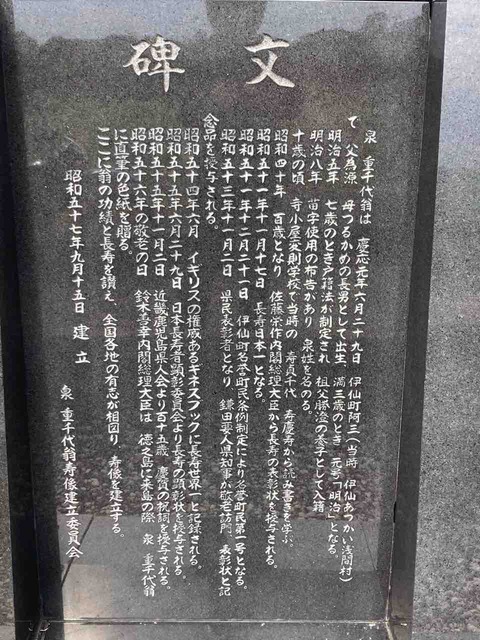 碑文
泉 重千代翁は 慶応元年六月二十九日 伊仙町阿三(当時 伊仙あつかい浅間村)
で 父為源 母つるかめの長男として出生、満三歳のとき 元号「明治」となる。
明治五年 七歳のとき戸籍法が制定され 祖父勝治の養子として入籍
明治八年 苗字使用の布告があり 泉姓を名のる。
十歳の頃 寺小屋変則学校で当時の 寿貞千代 寿慶寿から読み書きを学ぶ。
昭和四十年 百歳となり 佐藤栄作内閣総理大臣から長寿の表彰状を授与される。
昭和五十一年十一月十七日 長寿日本一となる。
昭和五十一年十二月二十一日 伊仙町名誉町民条例制定により名誉町民第一号となる。
昭和五十三年十一月二日 県民表彰者となり 鎌田要人県知事が敬老訪問、表彰状と記
念品を授与される。
昭和五十四年六月 イギリスの権威あるギネスブックに長寿世界一と記録される。
昭和五十五年六月二十九日 日本長寿者顕彰委員会より長寿の顕彰状を授与される。
昭和五十五年十一月二日 近畿鹿児島県人会より百十五歳 慶賀の祝詞を授与される。
昭和五十六年の敬老の日 鈴木善幸内閣総理大臣は 徳之島に来島の際 泉 重千代翁
に直筆の色紙を贈る。
ここに翁の功績と長寿を讃え、全国各地の有志が相図り 寿像を建立する。
昭和五十七年九月十五日 建立
泉 重千代翁寿像建立委員会